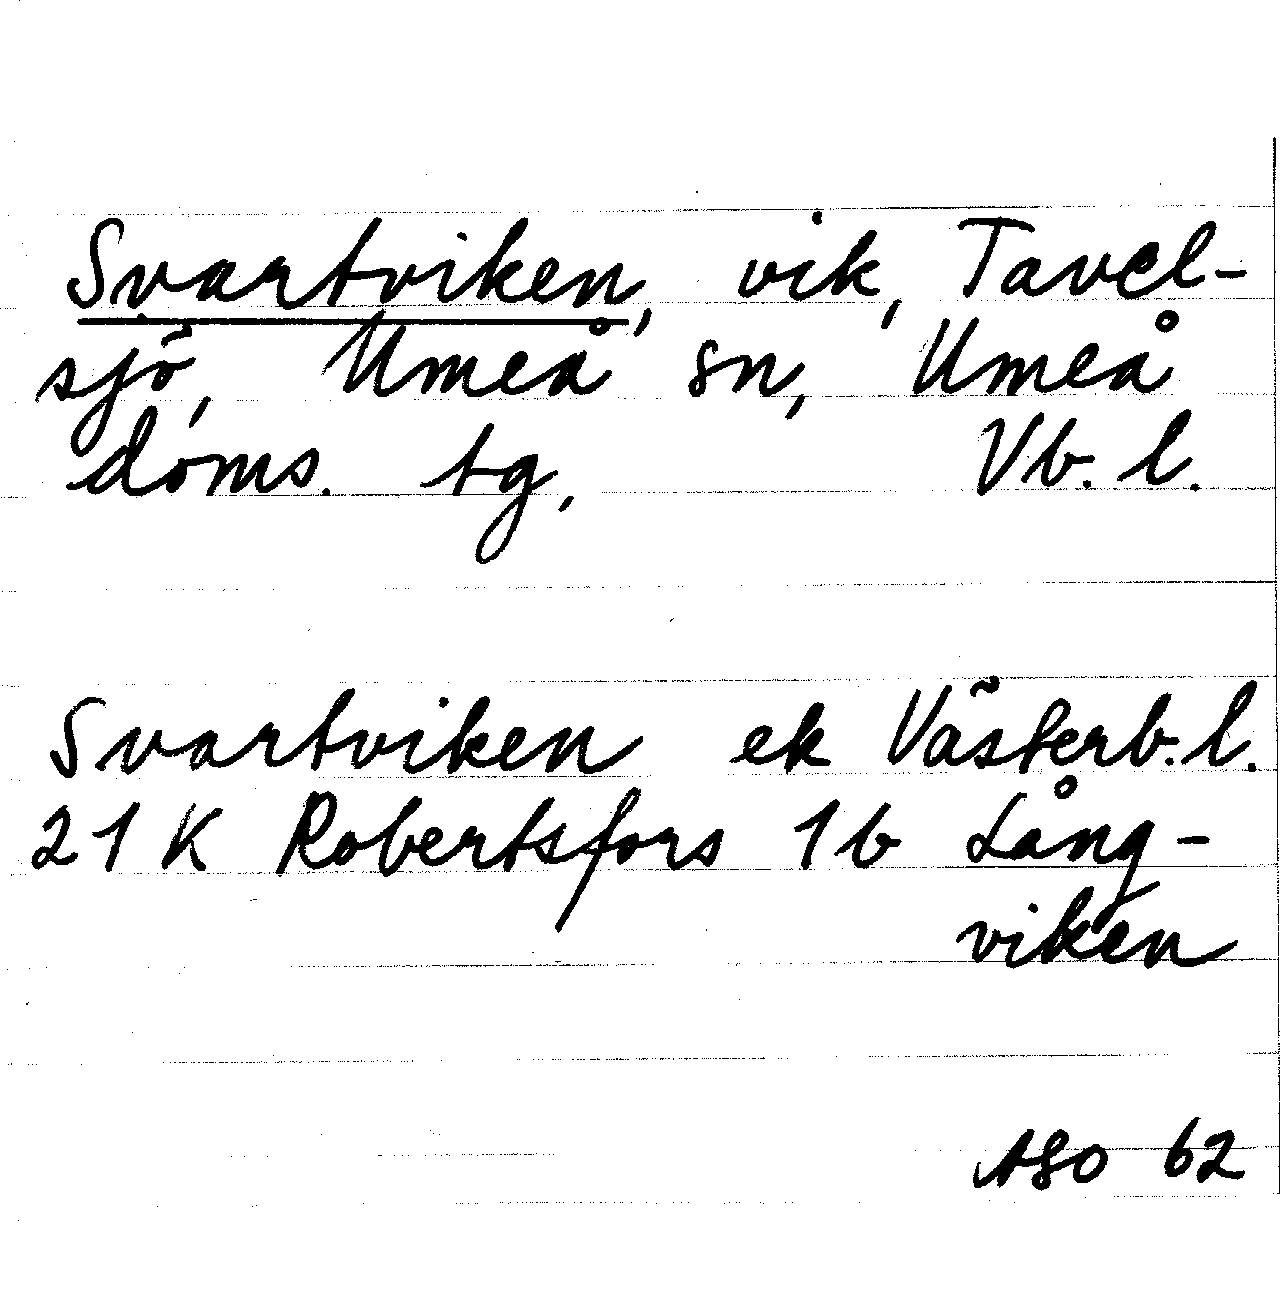 Svartviken, vik, Tavel-
sjö, Umeå sn, Umeå
doms. tg, Vb. l.
Svartviken ek Västerb. l.
21 K Robertsfors 1b Lång-
viken
ASO 62